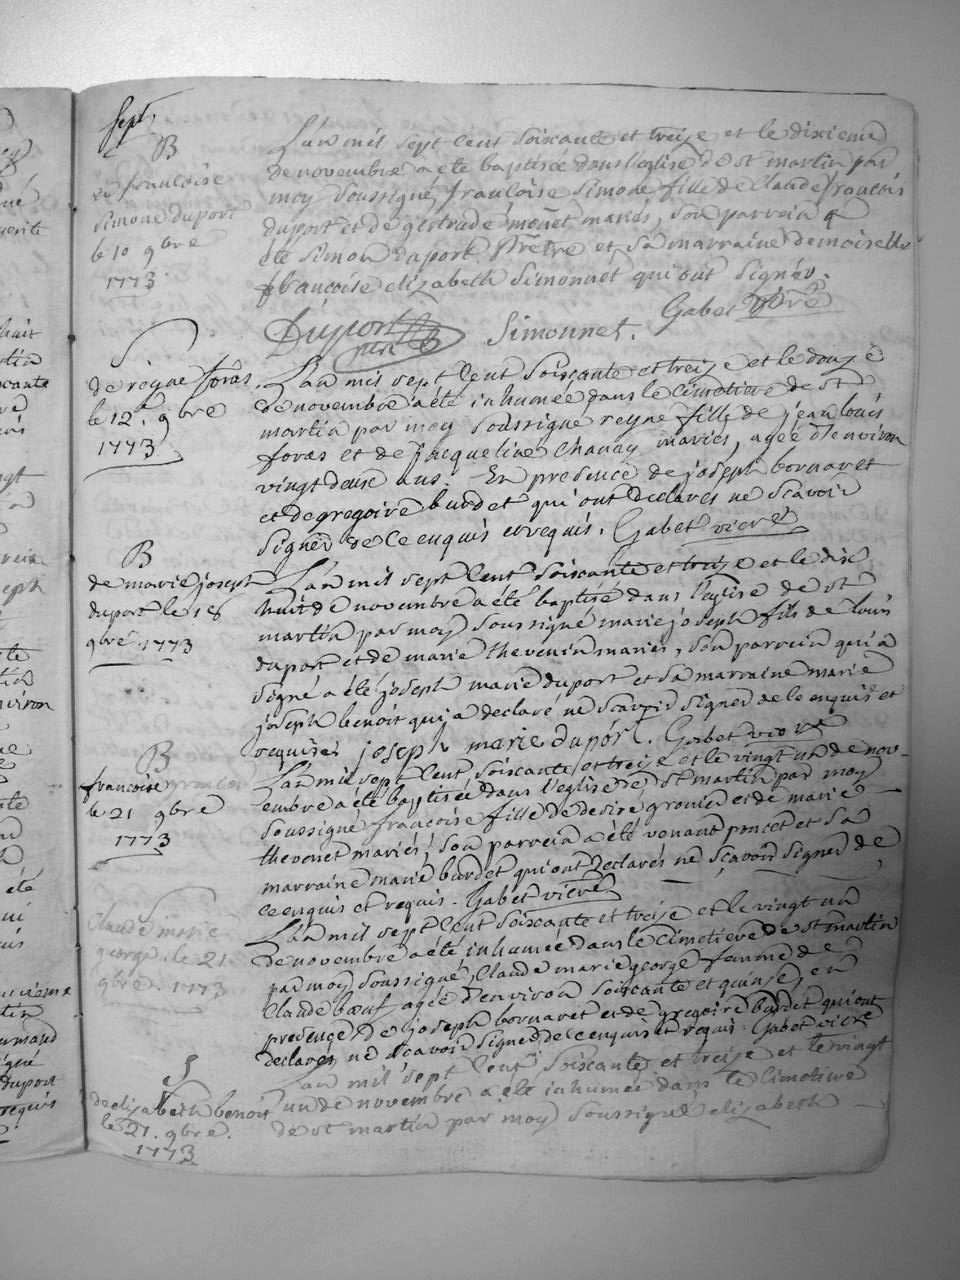 Sept.
B
de francoise
Simone duport
le 10 9bre
1773
L'an mil sept cent soixante et treize et le dixieme
de novembre a ete baptisée dans l'eglise de st martin par
moy soussigné francoise Simone fille de Claude francois
duport et de gertrude monet mariés, son parrein a
été Simon duport Prêtre et sa marraine demoiselle
francoise elizabeth Simonnet qui ont signés.
Gabet vicre
Duport Simonnet.
S.
de reyne foras
le 12e. 9bre
1773
L'an mil sept cent soixante et treize et le douze
de novembre a été inhumée dans le cimetiere de st
martin par moy soussigné reyne fille de jean louis
foras et de jacqueline Chanay mariés, agée d'environ
vingt deux ans. En presence de joseph bornaret
et de gregoire burdet qui ont declarés ne scavoir
signer de ce enquis et requis. Gabet vicre
B
de marie joseph
duport le 18
9bre 1773
L'an mil sept cent soixante et treize et le dix
huit de novembre a été baptisé dans l'eglise de st
martin par moy soussigné marie joseph fils de louis
duport et de marie thevenin mariés, son parrein qui a
signé a été joseph marie duport et sa marraine marie
joseph benoit qui a declaré ne scavoir signer de ce enquis et
requise. joseph marie duport. Gabet vicre
B
francoise
le 21 9bre
1773
L'an mil sept cent soixante et treize et le vingt un de nov-
embre a été baptisée dans l'eglise de st martin par moy
soussigné francoise fille de desire gronier et de marie
thevenet mariés, son parrein a été venant poncet et sa
marraine marie burdet qui ont declarés ne scavoir signer de
ce enquis et requis. Gabet vicre
S
Claude marie
george. le 21
9bre. 1773
L'an mil sept cent soixante et treize et le vingt un
de novembre a été inhumée dans le cimetiere de st martin
par moy soussigné, Claude marie george femme de
Claude bœuf agée d'environ soixante et quinze, en
presence de joseph bornaret et de gregoire burdet qui ont
declarés ne scavoir signer de ce enquis et requis. Gabet vicre
S
de elizabeth benoit
le 21. 9bre.
1773
L'an mil sept cent soixante et treize et le vingt
un de novembre a été inhumée dans le cimetiere
de st martin par moy soussigné elizabeth